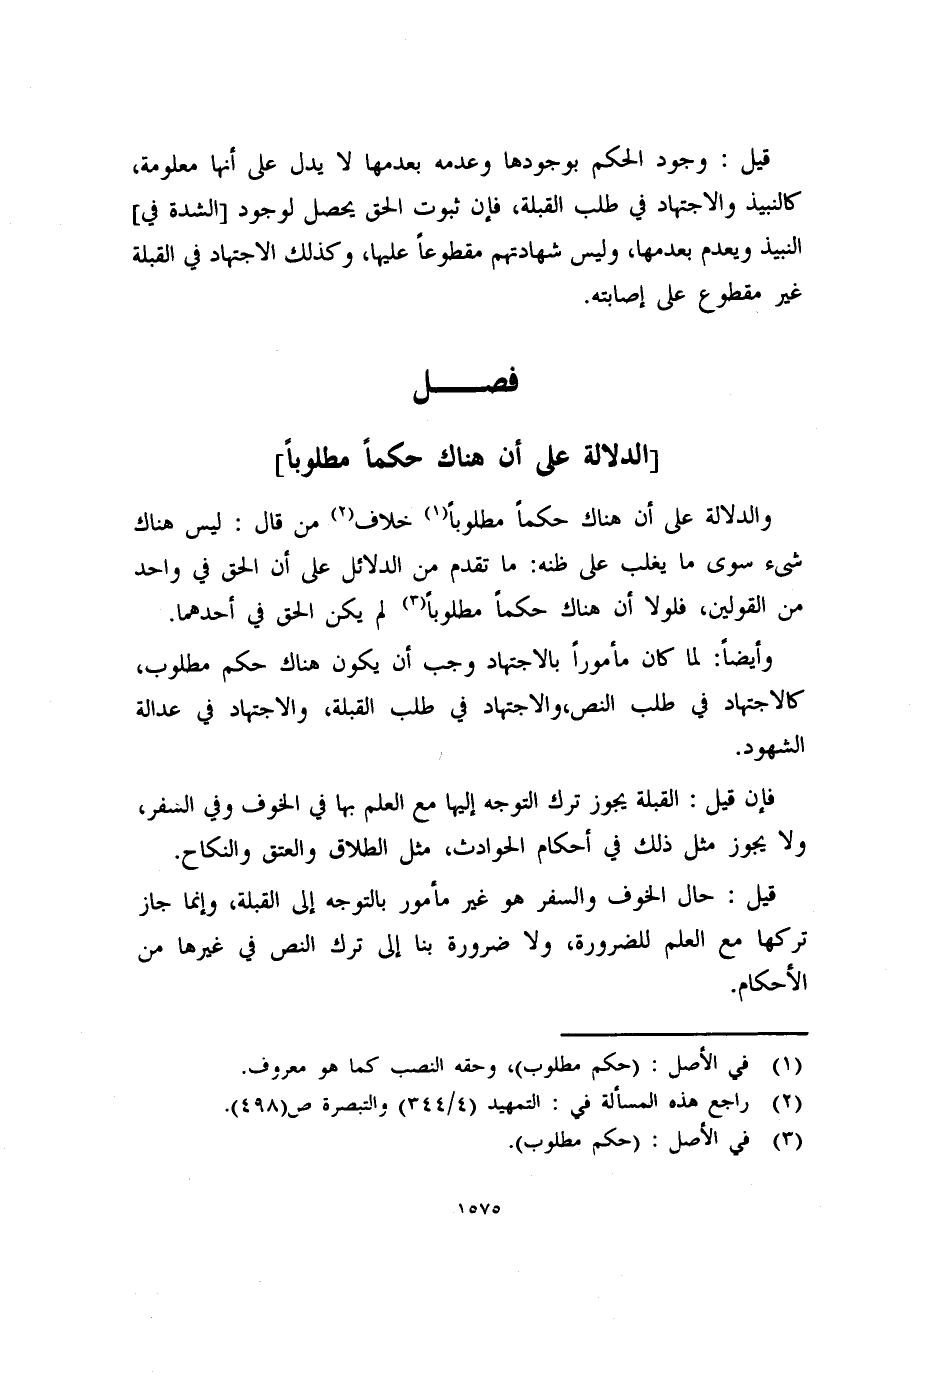 قيل : وجود الحكم بوجودها وعدمه بعدمها لا يدل على أنها معلومة،
كالنبيذ والاجتهاد في طلب القبلة، فإن ثبوت الحق يحصل لوجود [الشدة في]
النبيذ ويعدم بعدمها، وليس شهادتهم مقطوعاً عليها، وكذلك الاجتهاد في القبلة
غير مقطوع على إصابته.
فصـــــل
[الدلالة على أن هناك حكماً مطلوباً]
والدلالة على أن هناك حكماً مطلوباً(١) خلاف(٢) من قال : ليس هناك
شيء سوى ما يغلب على ظنه: ما تقدم من الدلائل على أن الحق في واحد
من القولين، فلولا أن هناك حكماً مطلوباً(٣) لم يكن الحق في أحدهما.
وأيضاً: لما كان مأموراً بالاجتهاد وجب أن يكون هناك حكم مطلوب،
كالاجتهاد في طلب النص،والاجتهاد في طلب القبلة، والاجتهاد في عدالة
الشهود.
فإن قيل : القبلة يجوز ترك التوجه إليها مع العلم بها في الخوف وفي السفر،
ولا يجوز مثل ذلك في أحكام الحوادث، مثل الطلاق والعتق والنكاح.
قيل : حال الخوف والسفر هو غير مأمور بالتوجه إلى القبلة، وإنما جاز
تركها مع العلم للضرورة، ولا ضرورة بنا إلى ترك النص في غيرها من
الأحكام.
(١) في الأصل : (حكم مطلوب)، وحقه النصب كما هو معروف.
(٢) راجع هذه المسألة في : التمهيد (٣٤٤/٤) والتبصرة ص(٤٩٨).
(٣) في الأصل : (حكم مطلوب).
١٥٧٥